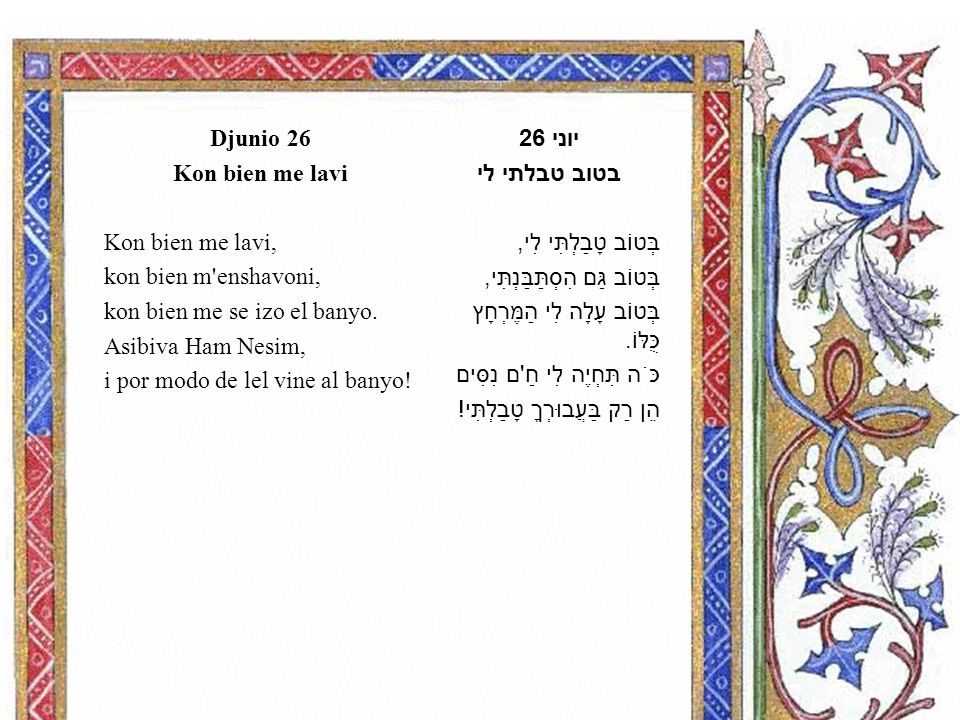 Djunio 26
Kon bien me lavi
Kon bien me lavi,
kon bien m'enshavoni,
kon bien me se izo el banyo.
Asibiva Ham Nesim,
i por modo de lel vine al banyo!
יוני 26
בטוב טבלתי לי
בְּטוֹב טָבַלְתִּי לִי,
בְּטוֹב גַּם הִסְתַּבַּנְתִּי,
בְּטוֹב עָלָה לִי הַמֶּרְחָץ
כֻּלּוֹ.
כֹּה תִּחְיֶה לִי חַ'ם נִסִּים
הֵן רַק בַּעֲבוּרְךָ טָבַלְתִּי!